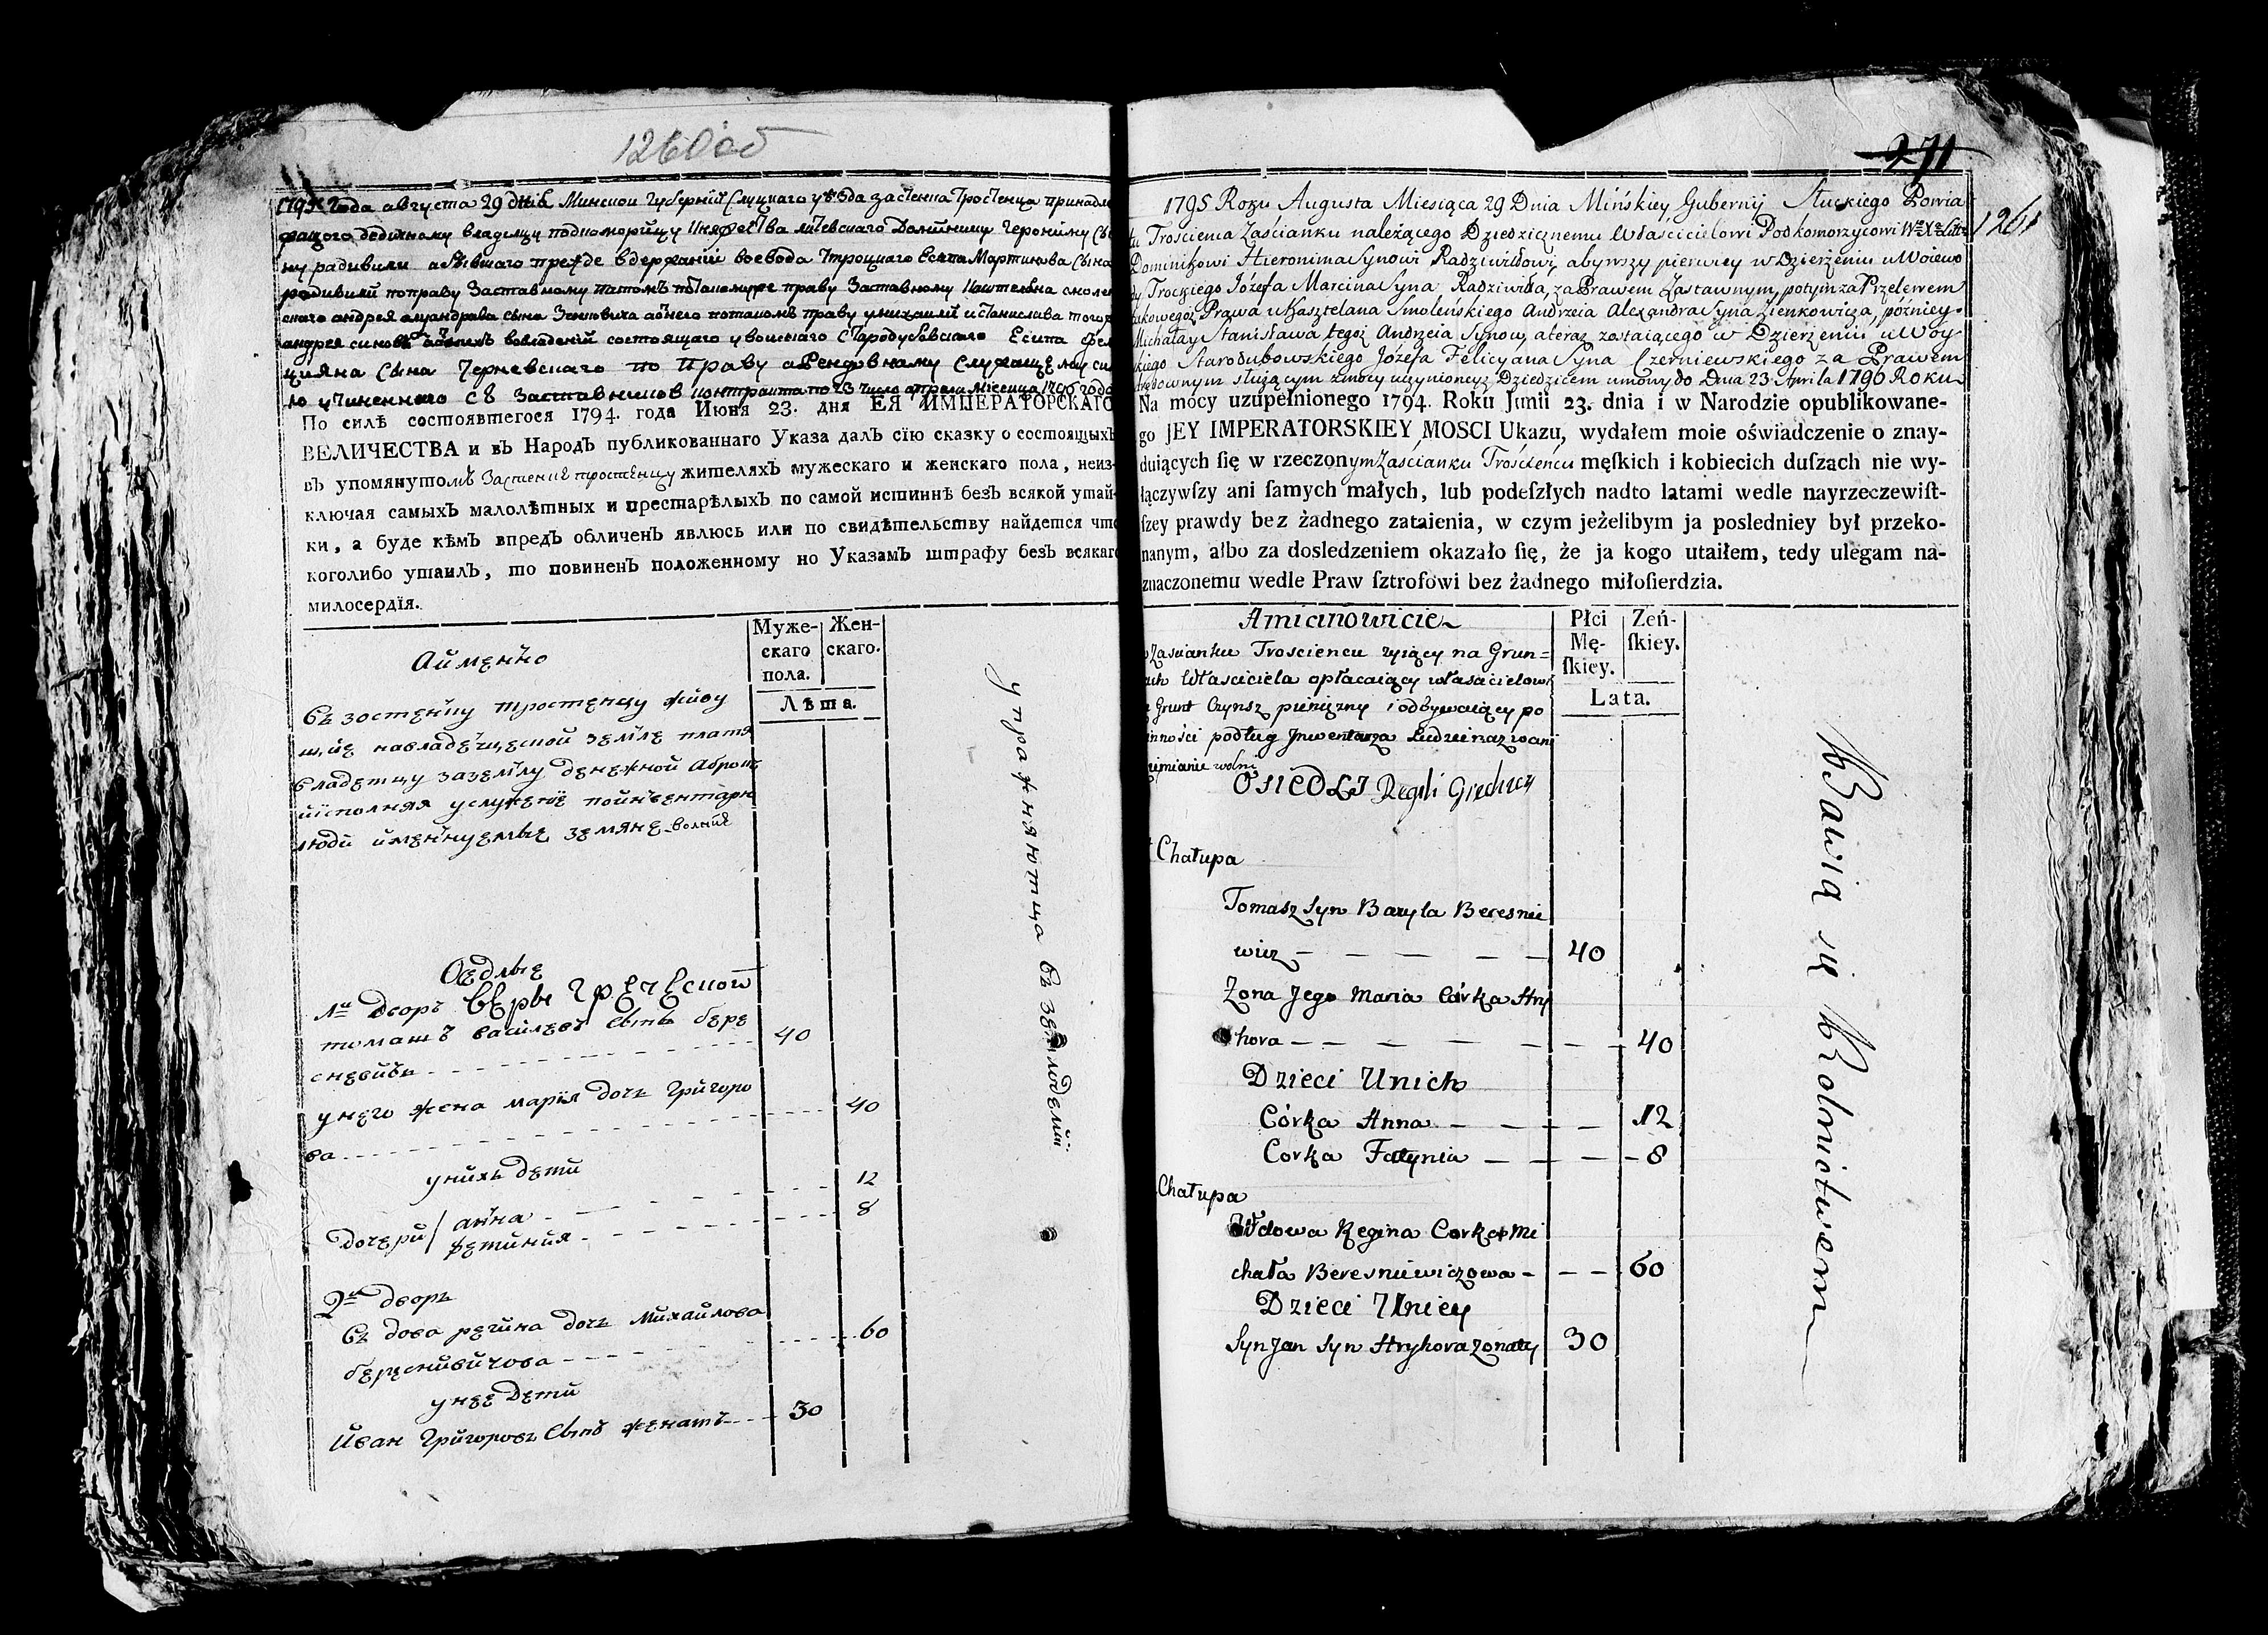 1260 об
1795 года августа 29 дня Минской Губернии Слуцкаго уезда застенка Тростенца принадле
жащаго дедичному владелцу подкоморицу Княжества литевскаго Доминику Геронимову Сы
ну радивили а бывшаго прежде вдержании воевода Троцкаго Есипа Мартинова Сына
радивили поправу Заставному патомъ потакомуже праву Заставному каштеляна смолен
скаго андрея александрова сына Зенковича а
андрея синовъ состоящаго увойскаго Стародубовскаго Есипа Фели
цияна Сына Черневскаго по Праву аРендовному Служащему
учиненного съ Заставников контракта по 23 число апреля месеца 1796 года
По силѣ состоявшегося 1794. года Июня 23. дня ЕЯ ИМПЕРАТОРСКАГО
ВЕЛИЧЕСТВА и въ Народъ публикованнаго Указа далъ сію сказку о состоящыхъ
въ упомянутомъ Застенке тростенцу жителяхъ мужескаго и женскаго пола, неиз-
ключая самыхъ малолѣтныхъ и престарѣлыхъ по самой истиннѣ безъ всякой утай-
ки, а буде кѣмъ впредъ обличенъ явлюсь или по свидѣтельству найдется что
коголибо утаилъ, то повиненъ положенному по Указамъ штрафу безъ всякаго
милосердія.
Муже-
скаго
пола.
Жен-
скаго.
Лѣта.
Аймѣнно
Въ зостенку тростенцу живу
щие навладелческой земле платя
Владелцу заземлю денежной Аброкъ
исполняя услужение поинвентарю
люди йменнуемые земяне волние
Оседлые
1й Дворъ веры Греческой
томашъ василевъ сынъ бере
сневичъ - - - 40
унего жена мария дочь григоро
ва - - - 40
унихъ дети
дочери / анна - - - 12
фетиния - - - 8
2й дворъ
Вдова регина дочь Михайлова
береснивичова - - - 60
унее дети
Иван григоровъ сынъ женатъ - - - 30
упражняютца въ земледелии
271
1261
1795 Roku Augusta Miesiąca 29 Dnia Mińskiey Gubernij Słuckiego Powia
tu Trościenca Zaścianku należącego Dziedzicznemu Właścicielowi Podkomorzycowi
Dominikowi Hieronima Synowi Radziwiłłowi, a bywszy pierwiey w Dzierżeniu u Woiewo
dy Trockiego Józefa Marcina Syna Radziwiłła, za Prawem Zastawnym, potym za Przelewem
takowegoż Prawa u Kasztelana Smoleńskiego Andrzeia Alexandra Syna Zienkowicza, późniey
Michała y Stanisława tegoż Andrzeia Synow, a teraz zostaiącego w Dzierżeniu u Woy
skiego Starodubowskiego Józefa Felicyana Syna Czerniewskiego za Prawem
Arędownym służącym z mocy uczynioney z Dziedzicem umowy do Dnia 23 Aprila 1796 Roku
Na mocy uzupełnionego 1794. Roku Junii 23. dnia i w Narodzie opublikowane-
go JEY IMPERATORSKIEY MOSCI Ukazu, wydałem moie oświadczenie o znay-
duiących ſię w rzeczonym Zaścianku Trościeńcu męſkich i kobiecich duſzach nie wy-
łączywſzy ani ſamych małych, lub podeſzłych nadto latami wedle nayrzeczewiſt-
ſzey prawdy bez żadnego zataienia, w czym jeżelibym ja posledniey był przeko-
nanym, albo za dosledzeniem okazało ſię, że ja kogo utaiłem, tedy ulegam na-
znaczonemu wedle Praw ſztrofowi bez żadnego miłoſierdzia.
Płci
Mę-
ſkiey.
Zeń-
ſkiey.
Lata.
Amianowicie
w Zascianku Trosciencu żyiący na Grun=
tach Własciciela opłacaiący własacielowi
z Grunt Czynsz pieniężny i odbywaiący po
winności podług Jnwentarza Ludzie nazwani
ziemianie wolni
OSIEDLJ Regili Grechiey
1 Chałupa
Tomasz Syn Bazyla Beresnie
wicz - - - 40
Zona Jego Maria Córka Hry
hora - - - 40
Dzieci Unich
Córka Anna - - - 12
Corka Fatynia - - - 8
2 Chałupa
Wdowa Regina Corka Mi
chała Beresniewiczowa - - - 60
Dzieci Uniey
Syn Jan Syn Hryhora Zonaty 30
Bawią się Rolnictwem